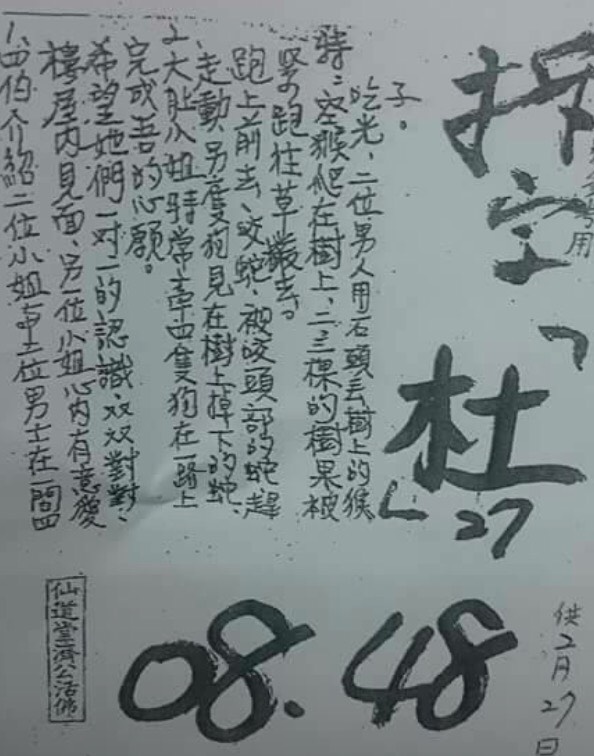 拆字「杜」
27
考用
1、四伯介紹二位小姐与二位男士在一間四
樓屋內見面、另一位小姐心內有意愛
希望她們一对一的認識、双双對對、
完成吾的心願。
2、大肚小姐時常牽四隻狗在一路上
走動另隻狗見在樹上掉下的蛇、
跑上前去、咬蛇、被咬頭部的蛇趕
緊跑往草叢去。
特:空猴爬在樹上、二三棵的樹果被
吃光、二位男人用石頭丢樹上的猴
子。
08.48
供2月27日
仙道堂濟公活佛